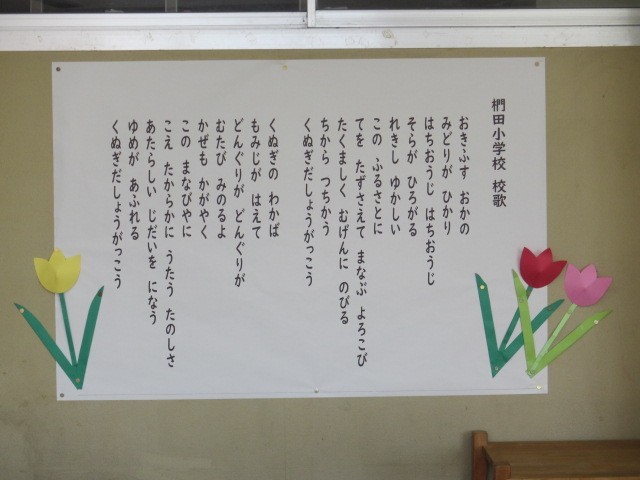 椚田小学校 校歌
おきふす おかの
みどりが ひかり
はちおうじ はちおうじ
そらが ひろがる
れきし ゆかしい
この ふるさとに
てを たずさえて まなぶ よろこび
たくましく むげんに のびる
ちから つちかう
くぬぎだしょうがっこう
くぬぎの わかば
もみじが はえて
どんぐりが どんぐりが
むたび みのるよ
かぜも かがやく
この まなびやに
こえ たからかに うたう たのしさ
あたらしい じだいを になう
ゆめが あふれる
くぬぎだしょうがっこう